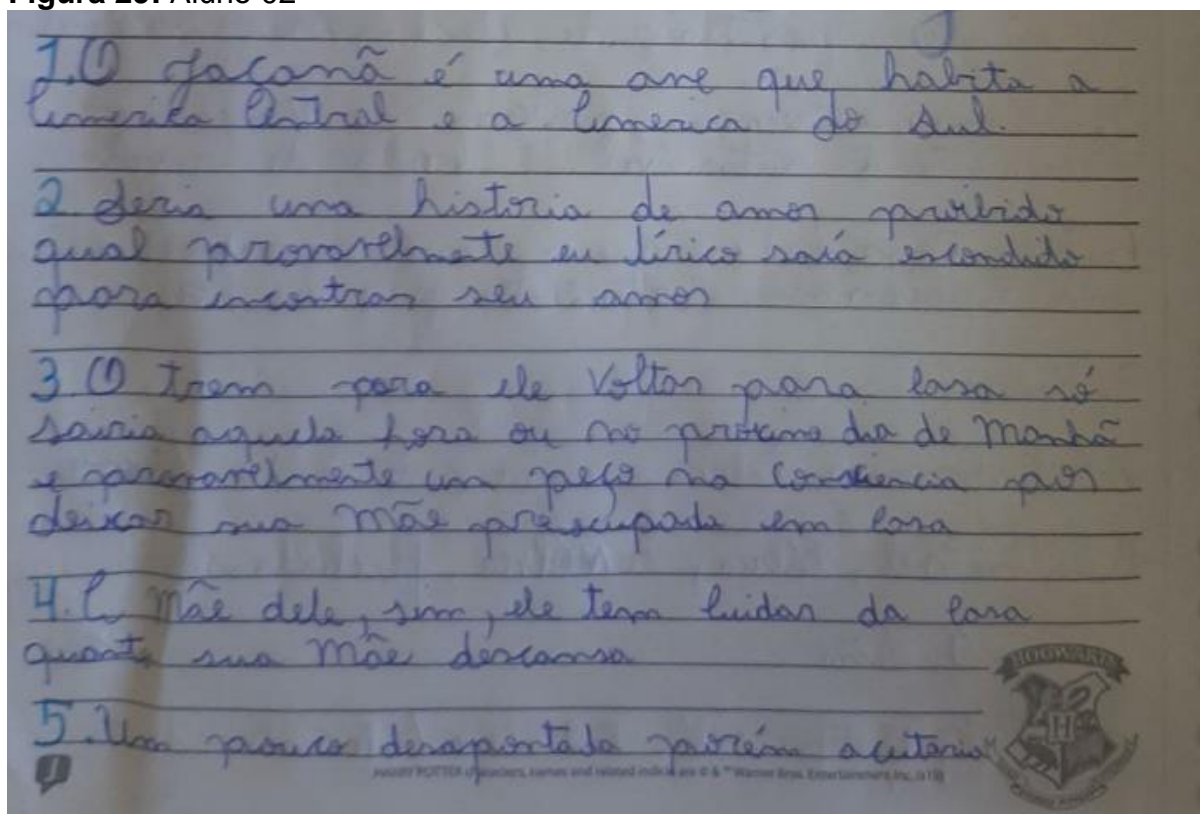 1. O Jaçanã é uma ave que habita a
America Central e a America do Sul.
2 Seria uma historia de amor proibido
qual provavelmente eu lírico saía escondido
para encontrar seu amor
3 O trem para ele Voltar para Casa só
sairia aquela hora ou no próximo dia de Manhã
e provavelmente um peso na Consciencia por
deixar sua Mãe preocupada em Casa
4. A Mãe dele, sim, ele tem Cuidar da Casa
sua Mãe descansa
5. Um pouco desapontada porém aceitaria
HOGWARTS
H
HARRY POTTER characters, names and related indicia are © & ™ Warner Bros. Entertainment Inc.